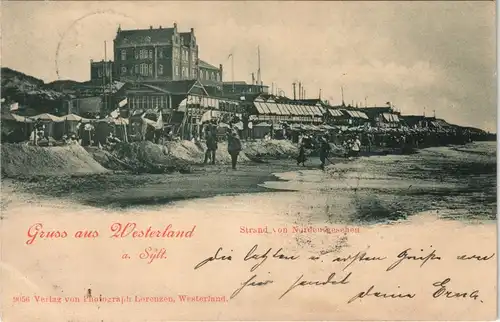 Gruss aus Westerland
a. Sylt.
Strand von Norden gesehen
die letzten u. ersten Grüße von
hier sendet
deine Erna.
9056 Verlag von Photograph Lorenzen, Westerland.